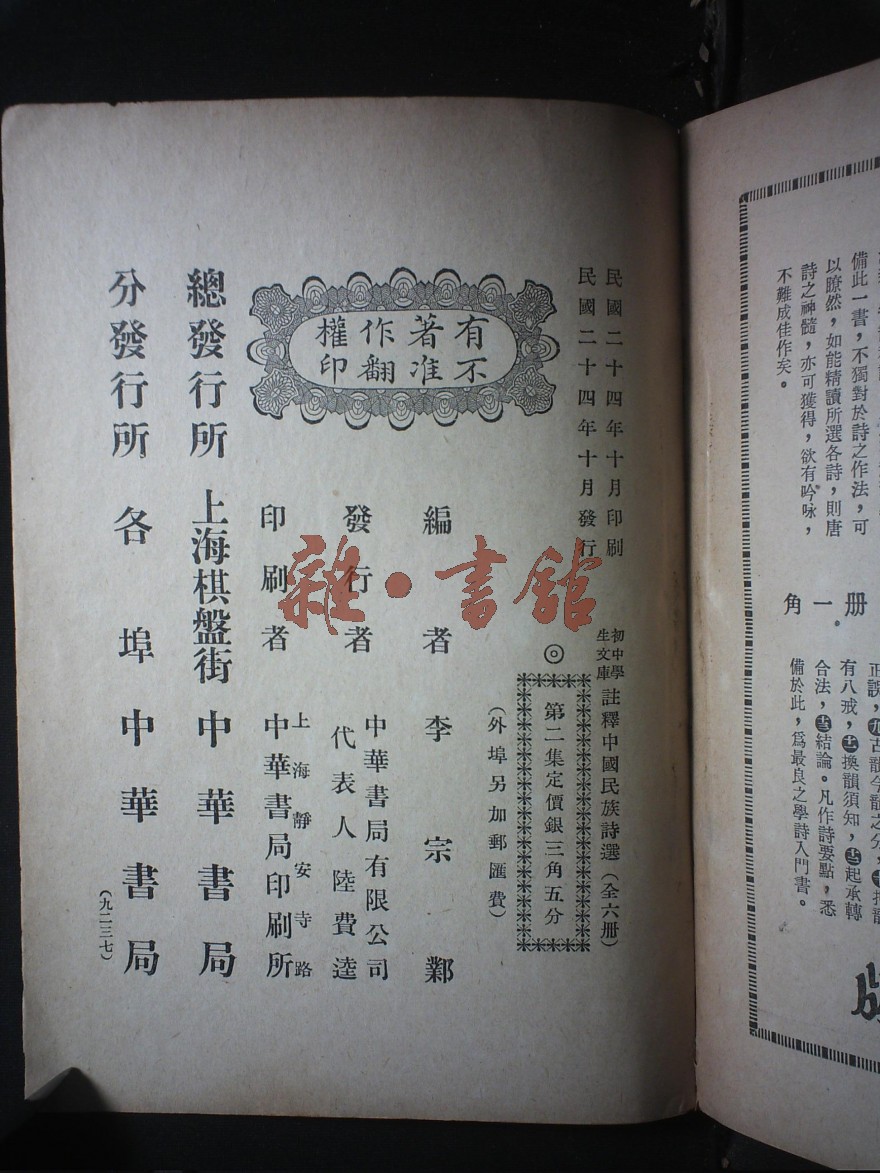 不難成佳作矣。
詩之神髓，亦可獲得，欲有吟咏，
以瞭然，如能精讀所選各詩，則唐
備此一書，不獨對於詩之作法，可
册一角
正誤，
有八戒，㊁換韻須知，㊂起承轉
合法，㊃結論。凡作詩要點，悉
備於此，爲最良之學詩入門書。
民國二十四年十月印刷
民國二十四年十月發行
初中學生文庫
註釋中國民族詩選（全六册）
◎
第二集定價銀三角五分
（外埠另加郵匯費）
有著作權
不准翻印
編者 李宗鄴
發行者 中華書局有限公司
代表人 陸費逵
印刷者 上海靜安寺路
中華書局印刷所
總發行所 上海棋盤街 中華書局
分發行所 各埠中華書局
（九二三七）
雜·書館